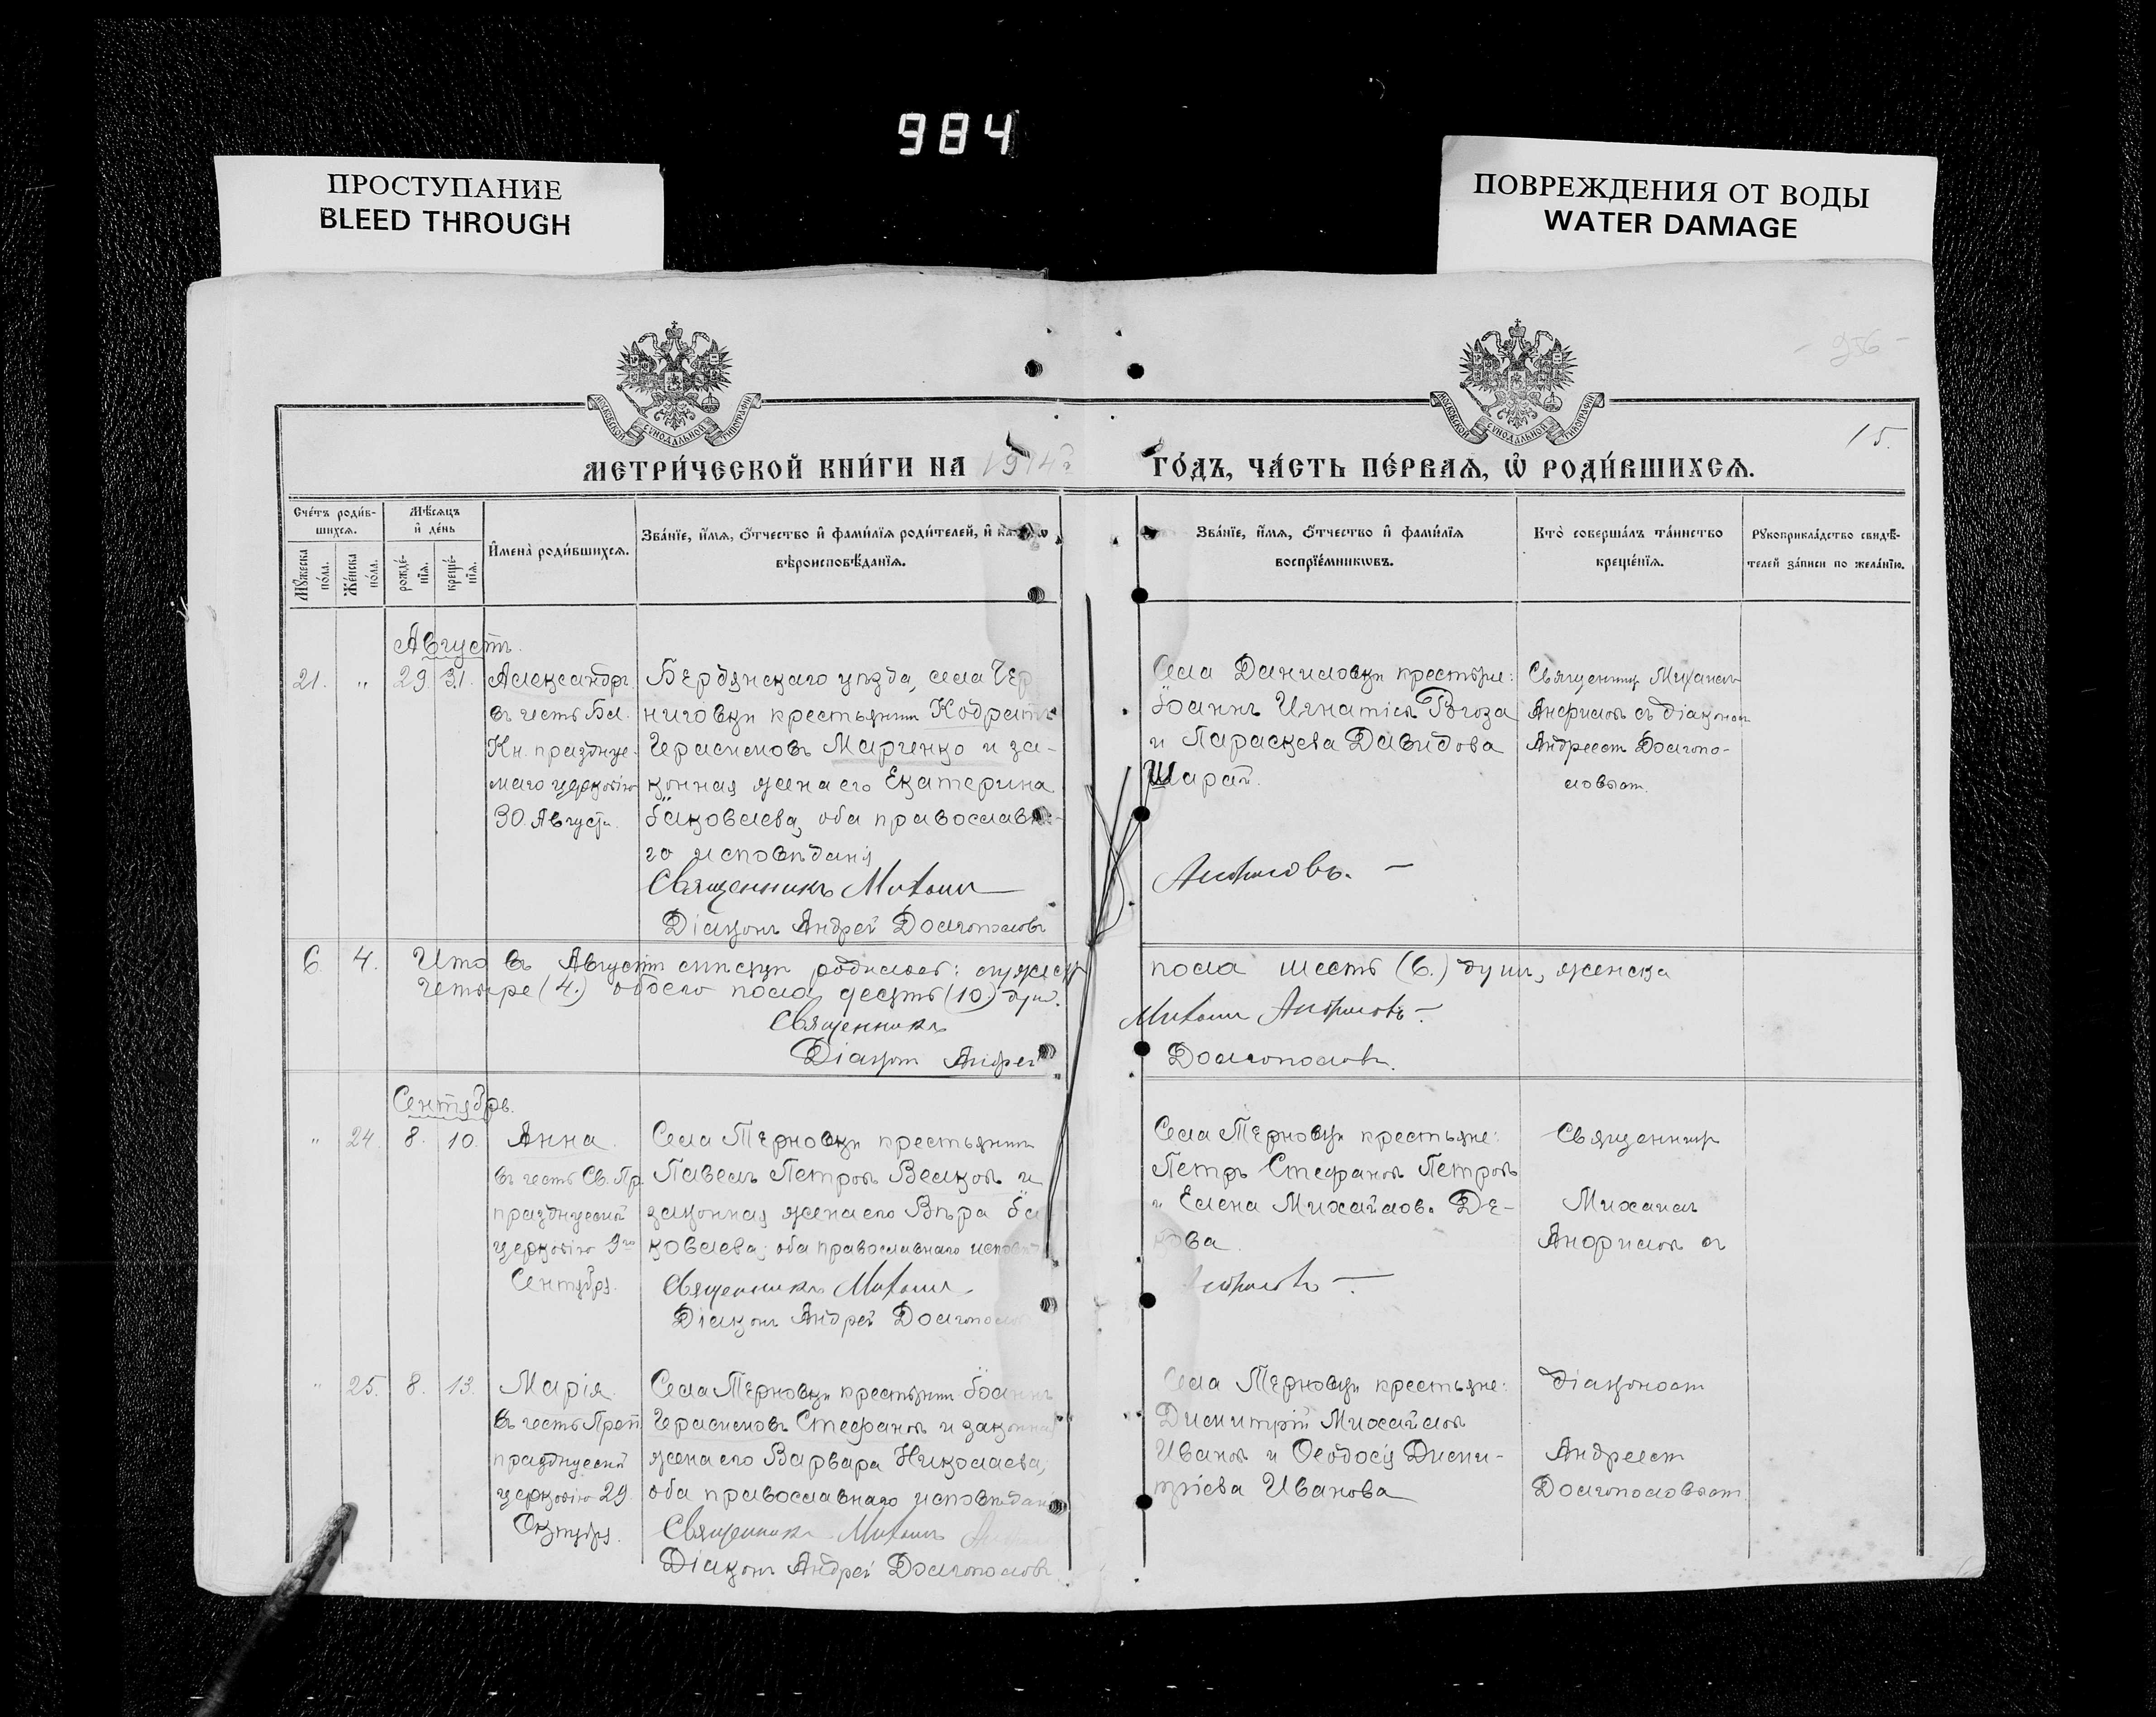 984
ПРОСТУПАНИЕ
BLEED THROUGH
ПОВРЕЖДЕНИЯ ОТ ВОДЫ
WATER DAMAGE
МОСКОВСКОЙ СѴНОДАЛЬНОЙ ТИПОГРАФІИ
МОСКОВСКОЙ СѴНОДАЛЬНОЙ ТИПОГРАФІИ
15.
МЕТРИ́ЧЕСКОЙ КНИ́ГИ НА 1914 г
ГО́ДЪ, ЧА́СТЬ ПЕ́РВАѦ, Ѽ РОДИ́ВШИХСѦ.
Сче́тъ роди́в-
шихсѧ.
Мꙋжеска по́ла.
Же́нска по́ла.
Мѣ́сѧцъ
и҆ де́нь
рожде́-
нїѧ.
креще́-
нїѧ.
И҆мена̀ роди́вшихсѧ.
Зва́нїе, и҆́мѧ, ѻ҆́тчество и҆ фами́лїѧ роди́телей, и҆
вѣроисповѣ́данїѧ.
Зва́нїе, и҆́мѧ, ѻ҆́тчество и҆ фами́лїѧ
воспрїе́мникѡвъ.
Кто̀ соверша́лъ та́инство
креще́нїѧ.
Рꙋкоприкла́дство свидѣ́-
телей за́писи по жела́нїю.
Августъ.
21. " 29. 31. Александръ.
въ честь Бл.
Кн. праздвуе-
маго церковію
30. Августа.
Бердянскаго уѣзда, села Чер
ниговки крестьянинъ Кодратъ
Герасимовъ Марченко и за-
конная жена его Екатерина
Іаковлева, оба православна-
го исповѣданія
Священникъ Михаилъ
Діаконъ Андрей Долгополовъ
Села Даниловки крестьяне:
Іоаннъ Игнатіевъ
и Параскева Давидова
Шарай.
Анфиловъ.
Священникъ Михаилъ
Анфиловъ съ діакономъ
Андреемъ Долгопо-
ловымъ.
6. 4. Что въ Августѣ мѣсяцѣ родилось: мужеска
пола шесть (6.) душъ, женска
четыре (4.) обоего пола десять (10.) душ.
Священникъ
Михаилъ Анфиловъ
Діаконъ Андрей
Долгополовъ.
Сентябрь.
" 24. 8. 10. Анна.
въ честь Св. Пр.
празднуемой
церковію 9го
Сентября.
Села Терновки крестьянинъ
Павелъ Петровъ Велковъ и
законная жена его Вѣра Іа
ковлева; оба православнаго
Священникъ Михаилъ
Діаконъ Андрей Долгополовъ
Села Терновки крестьяне:
Петръ Стефановъ Петровъ
и Елена Михайлов. Де-
кова
Анфиловъ
Священникъ
Михаилъ
Анфиловъ съ
" 25. 8. 13. Марія.
въ честь Преп.
празднуемой
церковію 29.
Октября.
Села Терновки крестьянинъ Іоаннъ
Герасимовъ Стефановъ и законная
жена его Варвара Николаева,
оба православнаго исповѣданія
Священникъ Михаилъ
Діаконъ Андрей Долгополовъ
Села Терновки крестьяне:
Димитрій Михайловъ
Ивановъ и Ѳеодосія Дими-
тріева Иванова
діакономъ
Андреемъ
Долгополовымъ.